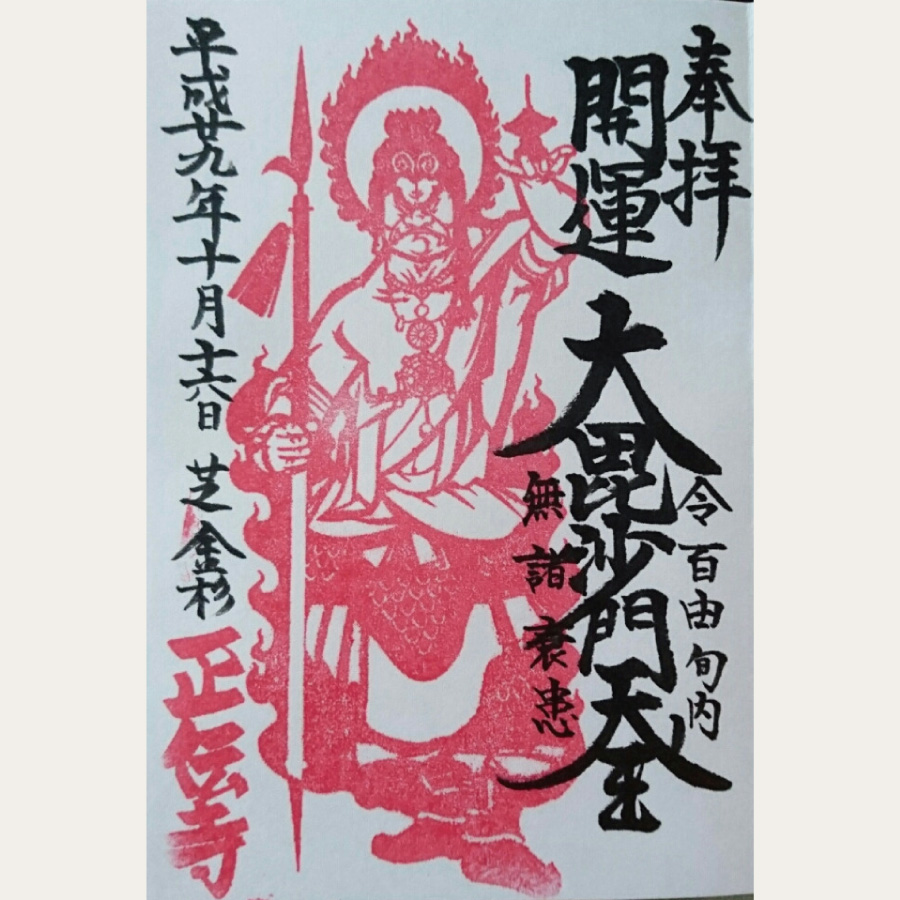 奉拝
令百由旬内
開運大毘沙門天王
無諸衰患
平成廿九年十月十六日 芝金杉
正伝寺